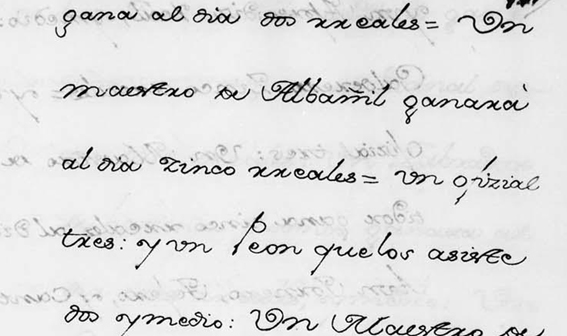 gana al dia dos rreales = Vn
maestro de Albañil ganará
al dia zinco rreales = vn ofizial
tres: y vn Peon que los asiste
dos y medio: Vn Maestro de